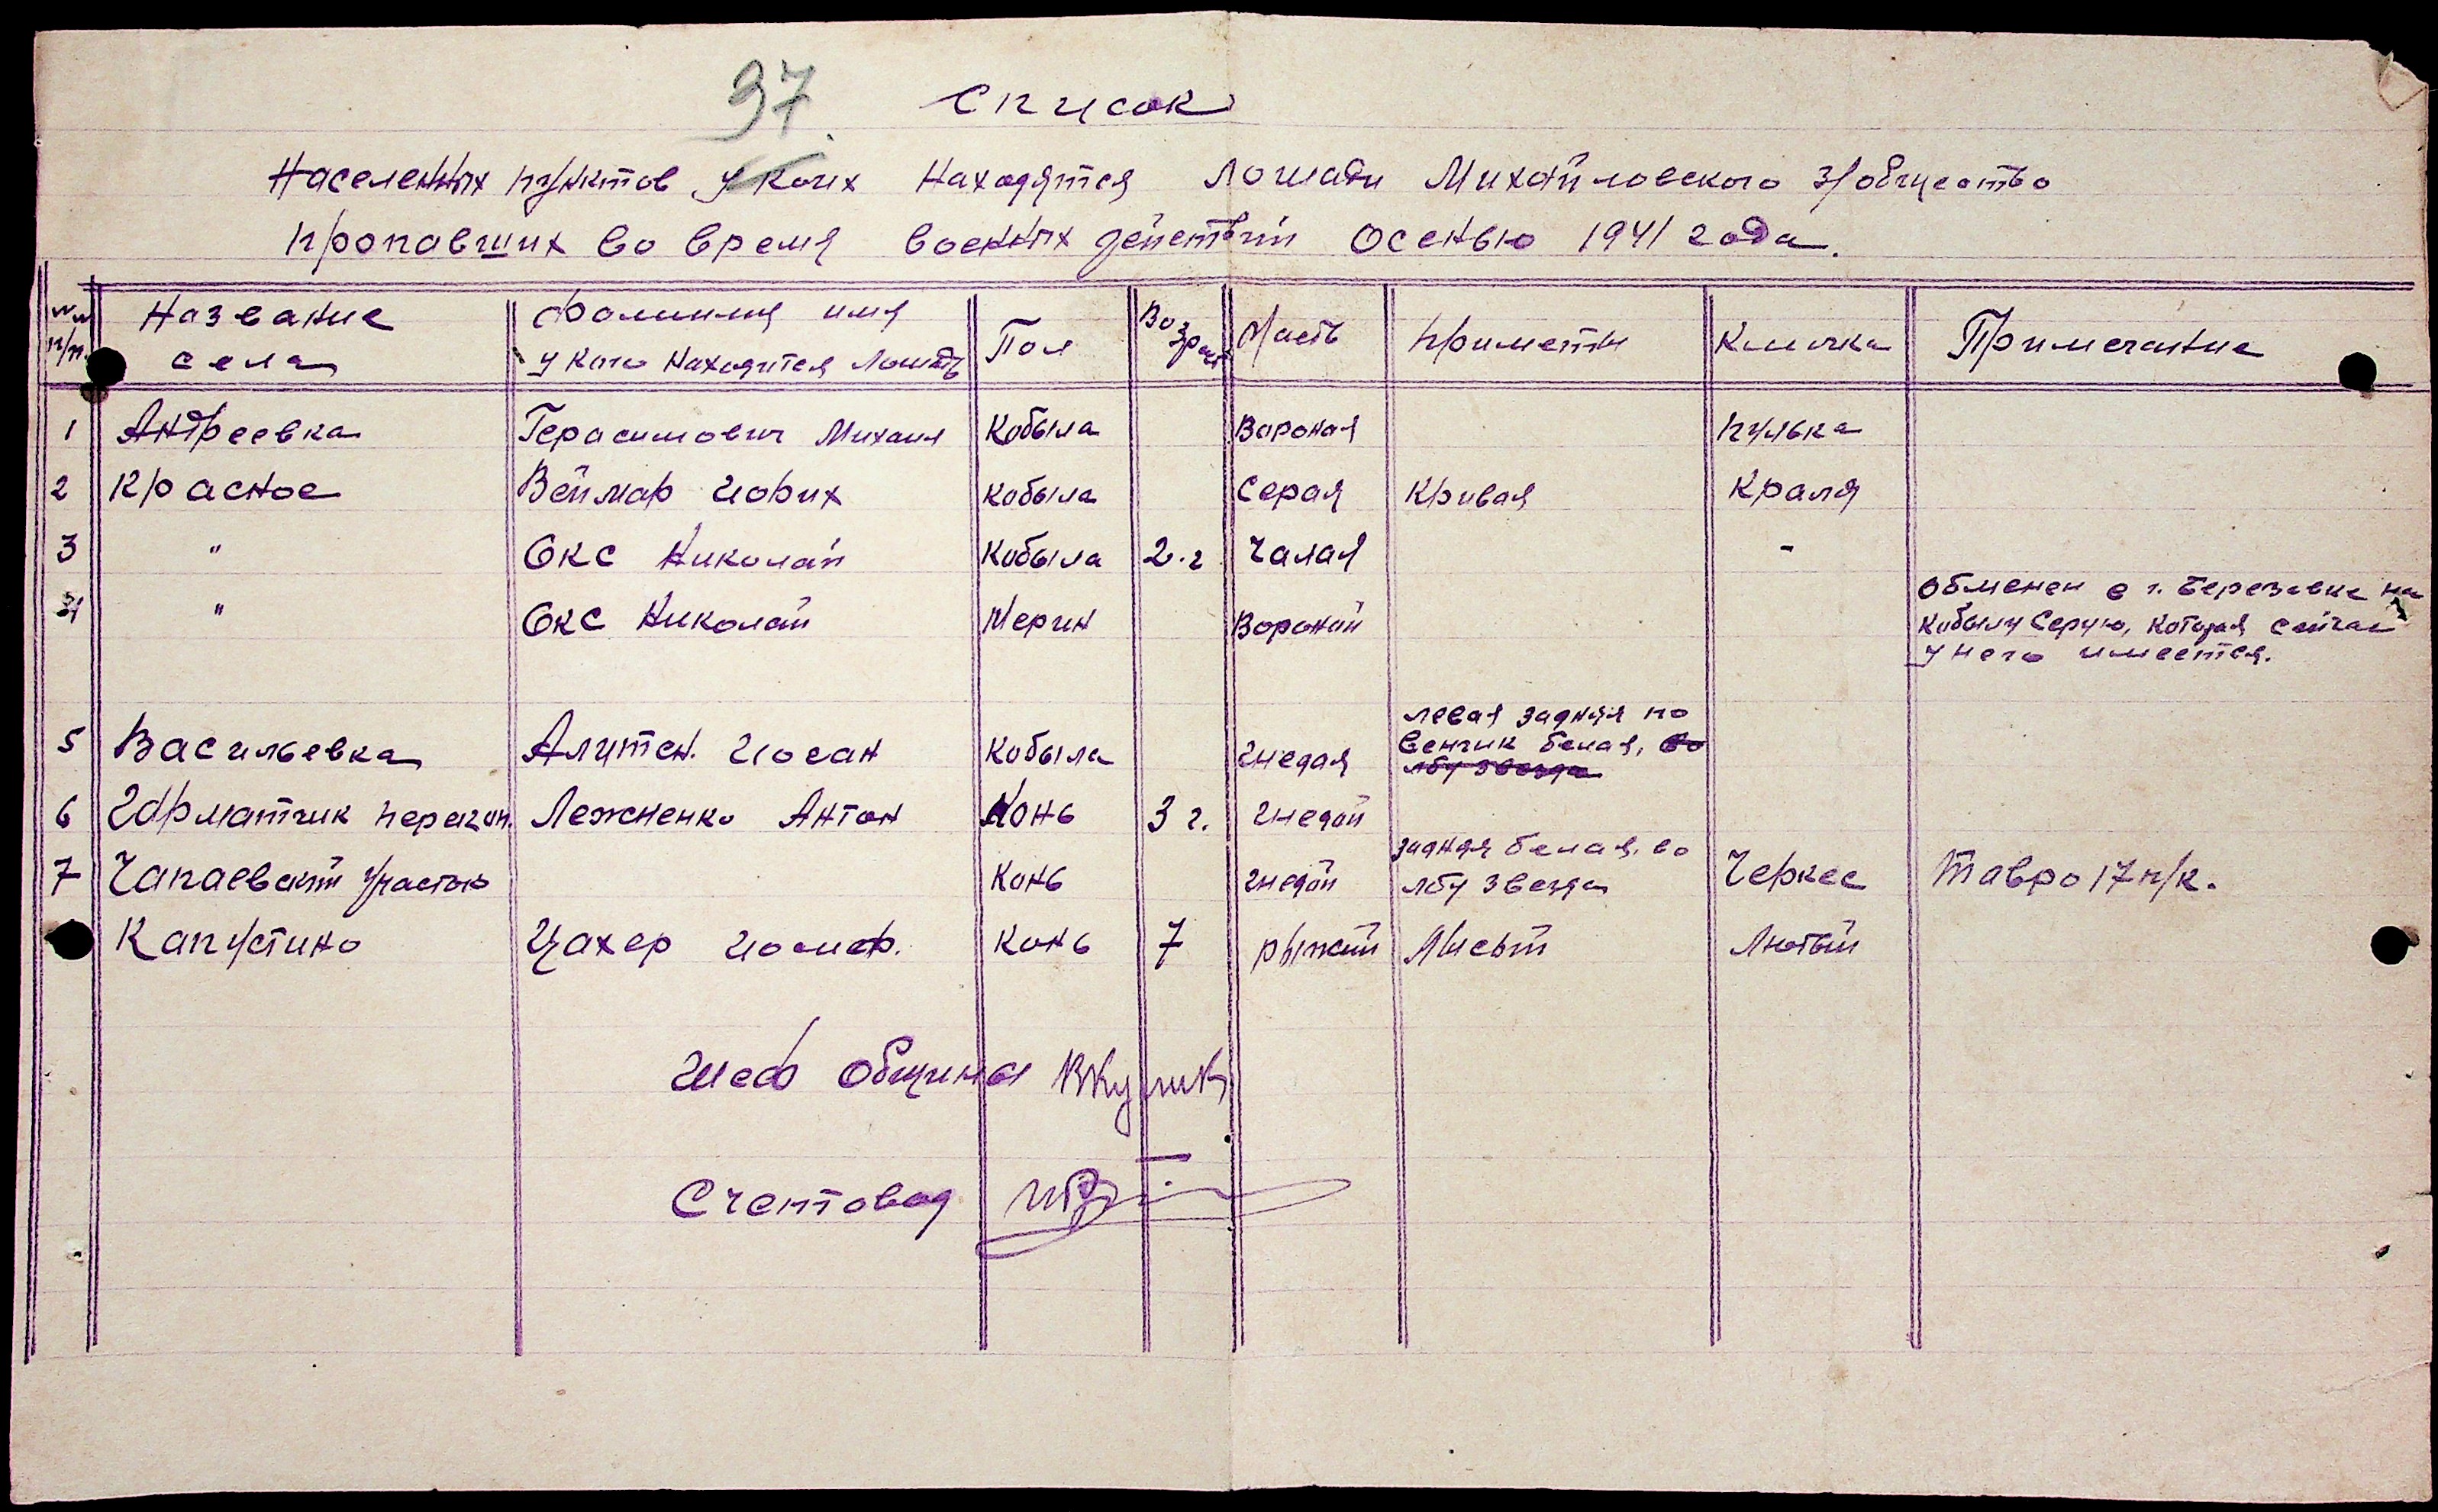 37.
Список
Населенных пунктов у коих находятся лошади Михайловского з/общества
пропавших во время военных действий осенью 1941 года.
№№ п/п. Название села Фамилия имя у кого находится лошадь Пол Возраст Масть Приметы Кличка Примечание
1 Андреевка Герасимович Михаил Кобыла Вороная Пулька
2 Красное Веймар Иорих Кобыла Серая Кривая Краля
3 " Окс Николай Кобыла 2.г Чалая -
4 " Окс Николай Мерин Вороной Обменен в г. Березовке на
кобылу Серую, которая сейчас
у него имеется.
5 Васильевка Иоган Кобыла гнедая левая задняя по
венчик белая, во
лбу звезда
6 Лежненко Антон Конь 3 г. гнедой
7 Чапаевский участок Конь гнедой задняя белая, во
лбу звезда Черкес Тавро 17 п/к.
Капустино Цахер Иосиф. Конь 7 рыжий Лысый Лютый
Шеф Общины ВКулик
Счетовод